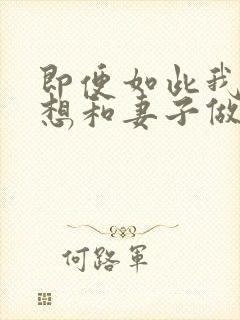 即便如此我
想和妻子做
何路军